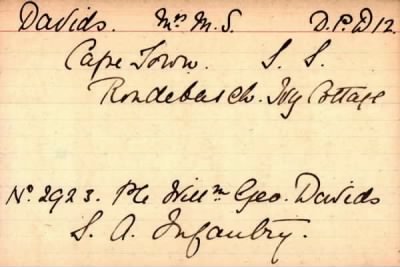 Davids. Mrs M. S. D.P.D 12.
Cape Town. S. S.
Rondebosch. Ivy Cottage
No. 2923. Pte Willm Geo. Davids
S. A. Infantry.